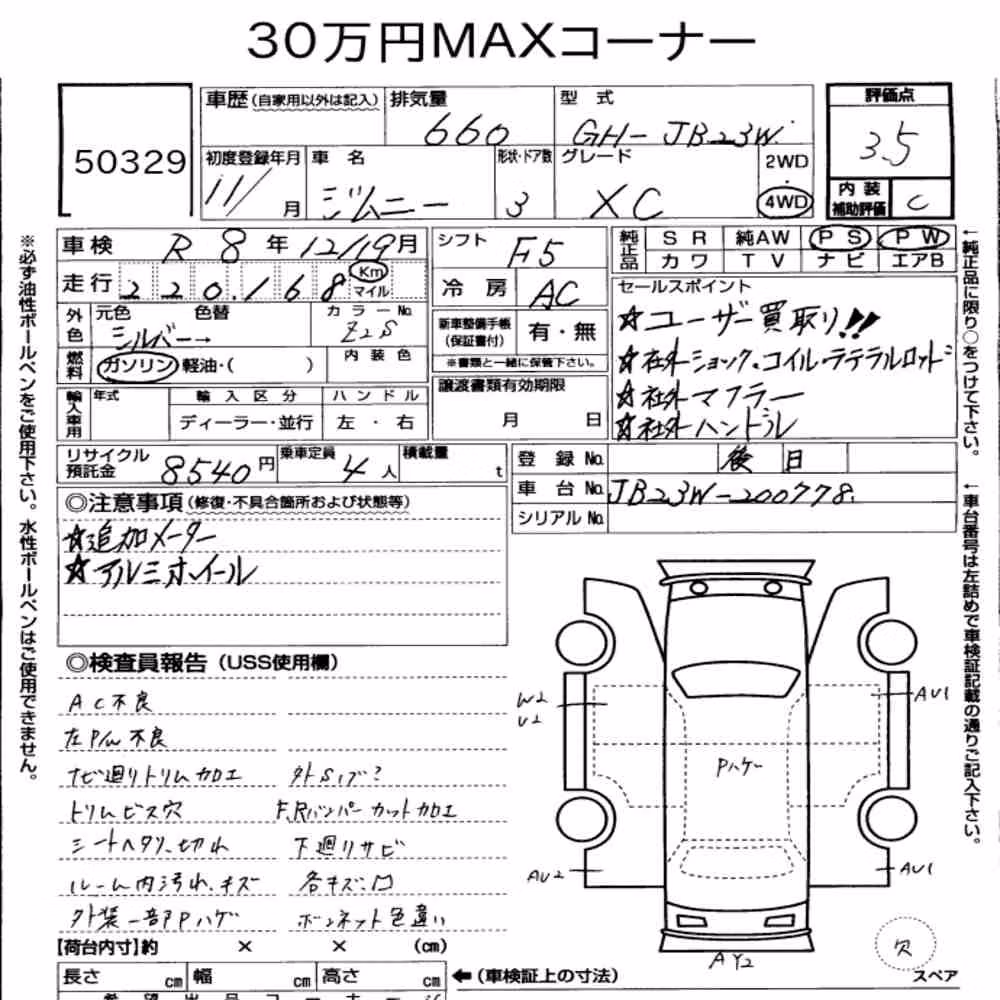 30万円MAXコーナー
50329
車歴(自家用以外は記入)
排気量
660
型 式
GH-JB23W
評価点
3.5
初度登録年月
11/
月
車 名
ジムニー
形状・ドア数
3
グレード
XC
2WD
・
4WD
内 装
補助評価
C
車検 R 8 年 12/19月
走行 220,168 Km
マイル
外色
元色
シルバー→
色替
カラーNo.
Z2S
燃料
ガソリン 軽油・( )
内 装 色
輸入車用
年式
輸 入 区 分
ハ ン ド ル
ディーラー・並行
左 ・ 右
シフト
F5
冷 房
AC
新車整備手帳
(保証書付)
有・無
※書類と一緒に保管下さい。
譲渡書類有効期限
月 日
純正品
S R
純AW
P S
P W
カ ワ
T V
ナ ビ
エアB
セールスポイント
☆ユーザー買取り!!
☆社外ショック、コイル・ラテラルロッド
☆社外マフラー
☆社外ハンドル
リサイクル
預託金
8540 円
乗車定員
4 人
積載量
t
登 録 No.
後 日
車 台 No.
JB23W-200778.
シリアル No.
◎注意事項(修復・不具合箇所および状態等)
☆追加メーター
☆アルミホイール
◎検査員報告(USS使用欄)
AC不良
左P/W不良
ナビ廻りトリム加工
外Sップ?
トリムビス穴
F,Rバンパーカット加工
シートヘタリ、切れ
下廻りサビ
ルーム内汚れ、キズ
各キズ、凹
外装一部Pハゲ
ボンネット色違い
【荷台内寸】約 × × (cm)
長さ cm
幅 cm
高さ cm
←(車検証上の寸法)
W2
U2
AU1
Pハゲー
AU2
AU1
AY2
欠
スペア
※必ず油性ボールペンをご使用下さい。水性ボールペンはご使用できません。
←純正品に限り○をつけて下さい。
←車台番号は左詰めで車検証記載の通りご記入下さい。